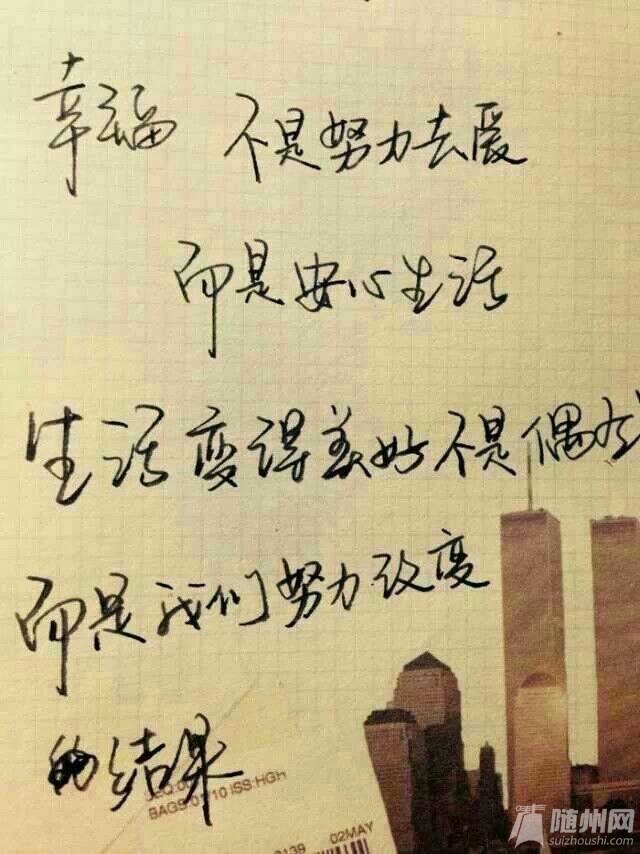 幸福 不是努力去爱
而是安心生活
生活变得美好不是偶然
而是我们努力改变
的结果
BAGS:01/10 ISS:HGH
0139 02MAY
随州网
suizhoushi.com